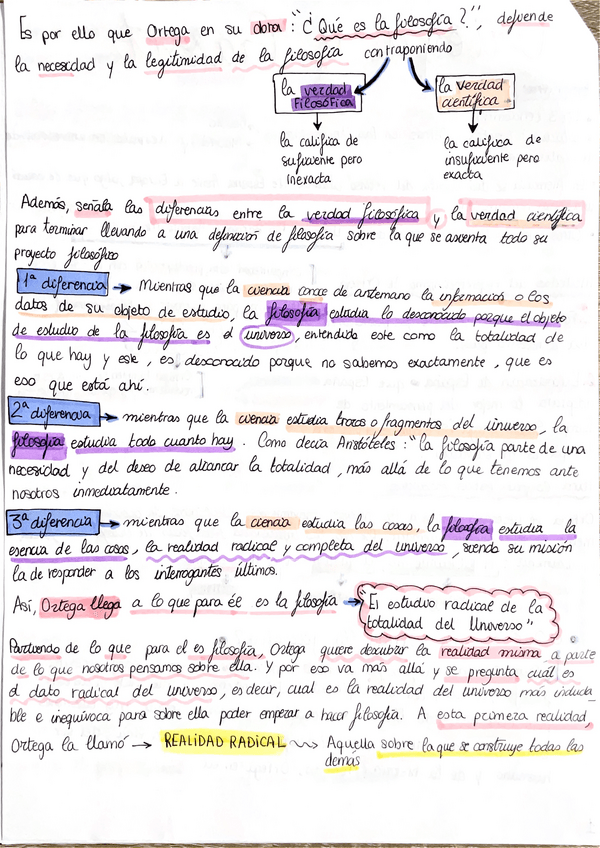 Es por ello que Ortega en su obra: "¿Qué es la filosofía?", defiende
la necesidad y la legitimidad de la filosofía contraponiendo
la verdad Filosófica
la califica de suficiente pero inexacta
la verdad científica
la califica de insuficiente pero exacta
Además, señala las diferencias entre la verdad filosófica y la verdad científica
para terminar llevando a una definición de filosofía sobre la que se asienta todo su
proyecto filosófico
1ª diferencia → Mientras que la ciencia conoce de antemano la información o los
datos de su objeto de estudio, la filosofía estudia lo desconocido porque el objeto
de estudio de la filosofía es el universo, entendido este como la totalidad de
lo que hay y este, es desconocido porque no sabemos exactamente, que es
eso que está ahí.
2ª diferencia → mientras que la ciencia estudia trozos o fragmentos del universo, la
filosofía estudia todo cuanto hay. Como decía Aristóteles: "la filosofía parte de una
necesidad y del deseo de alcanzar la totalidad, más allá de lo que tenemos ante
nosotros inmediatamente.
3ª diferencia → mientras que la ciencia estudia las cosas, la filosofía estudia la
esencia de las cosas, la realidad radical y completa del universo, siendo su misión
la de responder a los interrogantes últimos.
Así, Ortega llega a lo que para él es la filosofía → "El estudio radical de la
totalidad del Universo"
Partiendo de lo que para el es filosofía, Ortega quiere descubrir la realidad misma a parte
de lo que nosotros pensamos sobre ella. Y por eso va más allá y se pregunta cuál es
el dato radical del universo, es decir, cual es la realidad del universo más induda
ble e inequívoca para sobre ella poder empezar a hacer filosofía. A esta primera realidad,
Ortega la llamó → REALIDAD RADICAL ⤳ Aquella sobre la que se construye todas las
demás